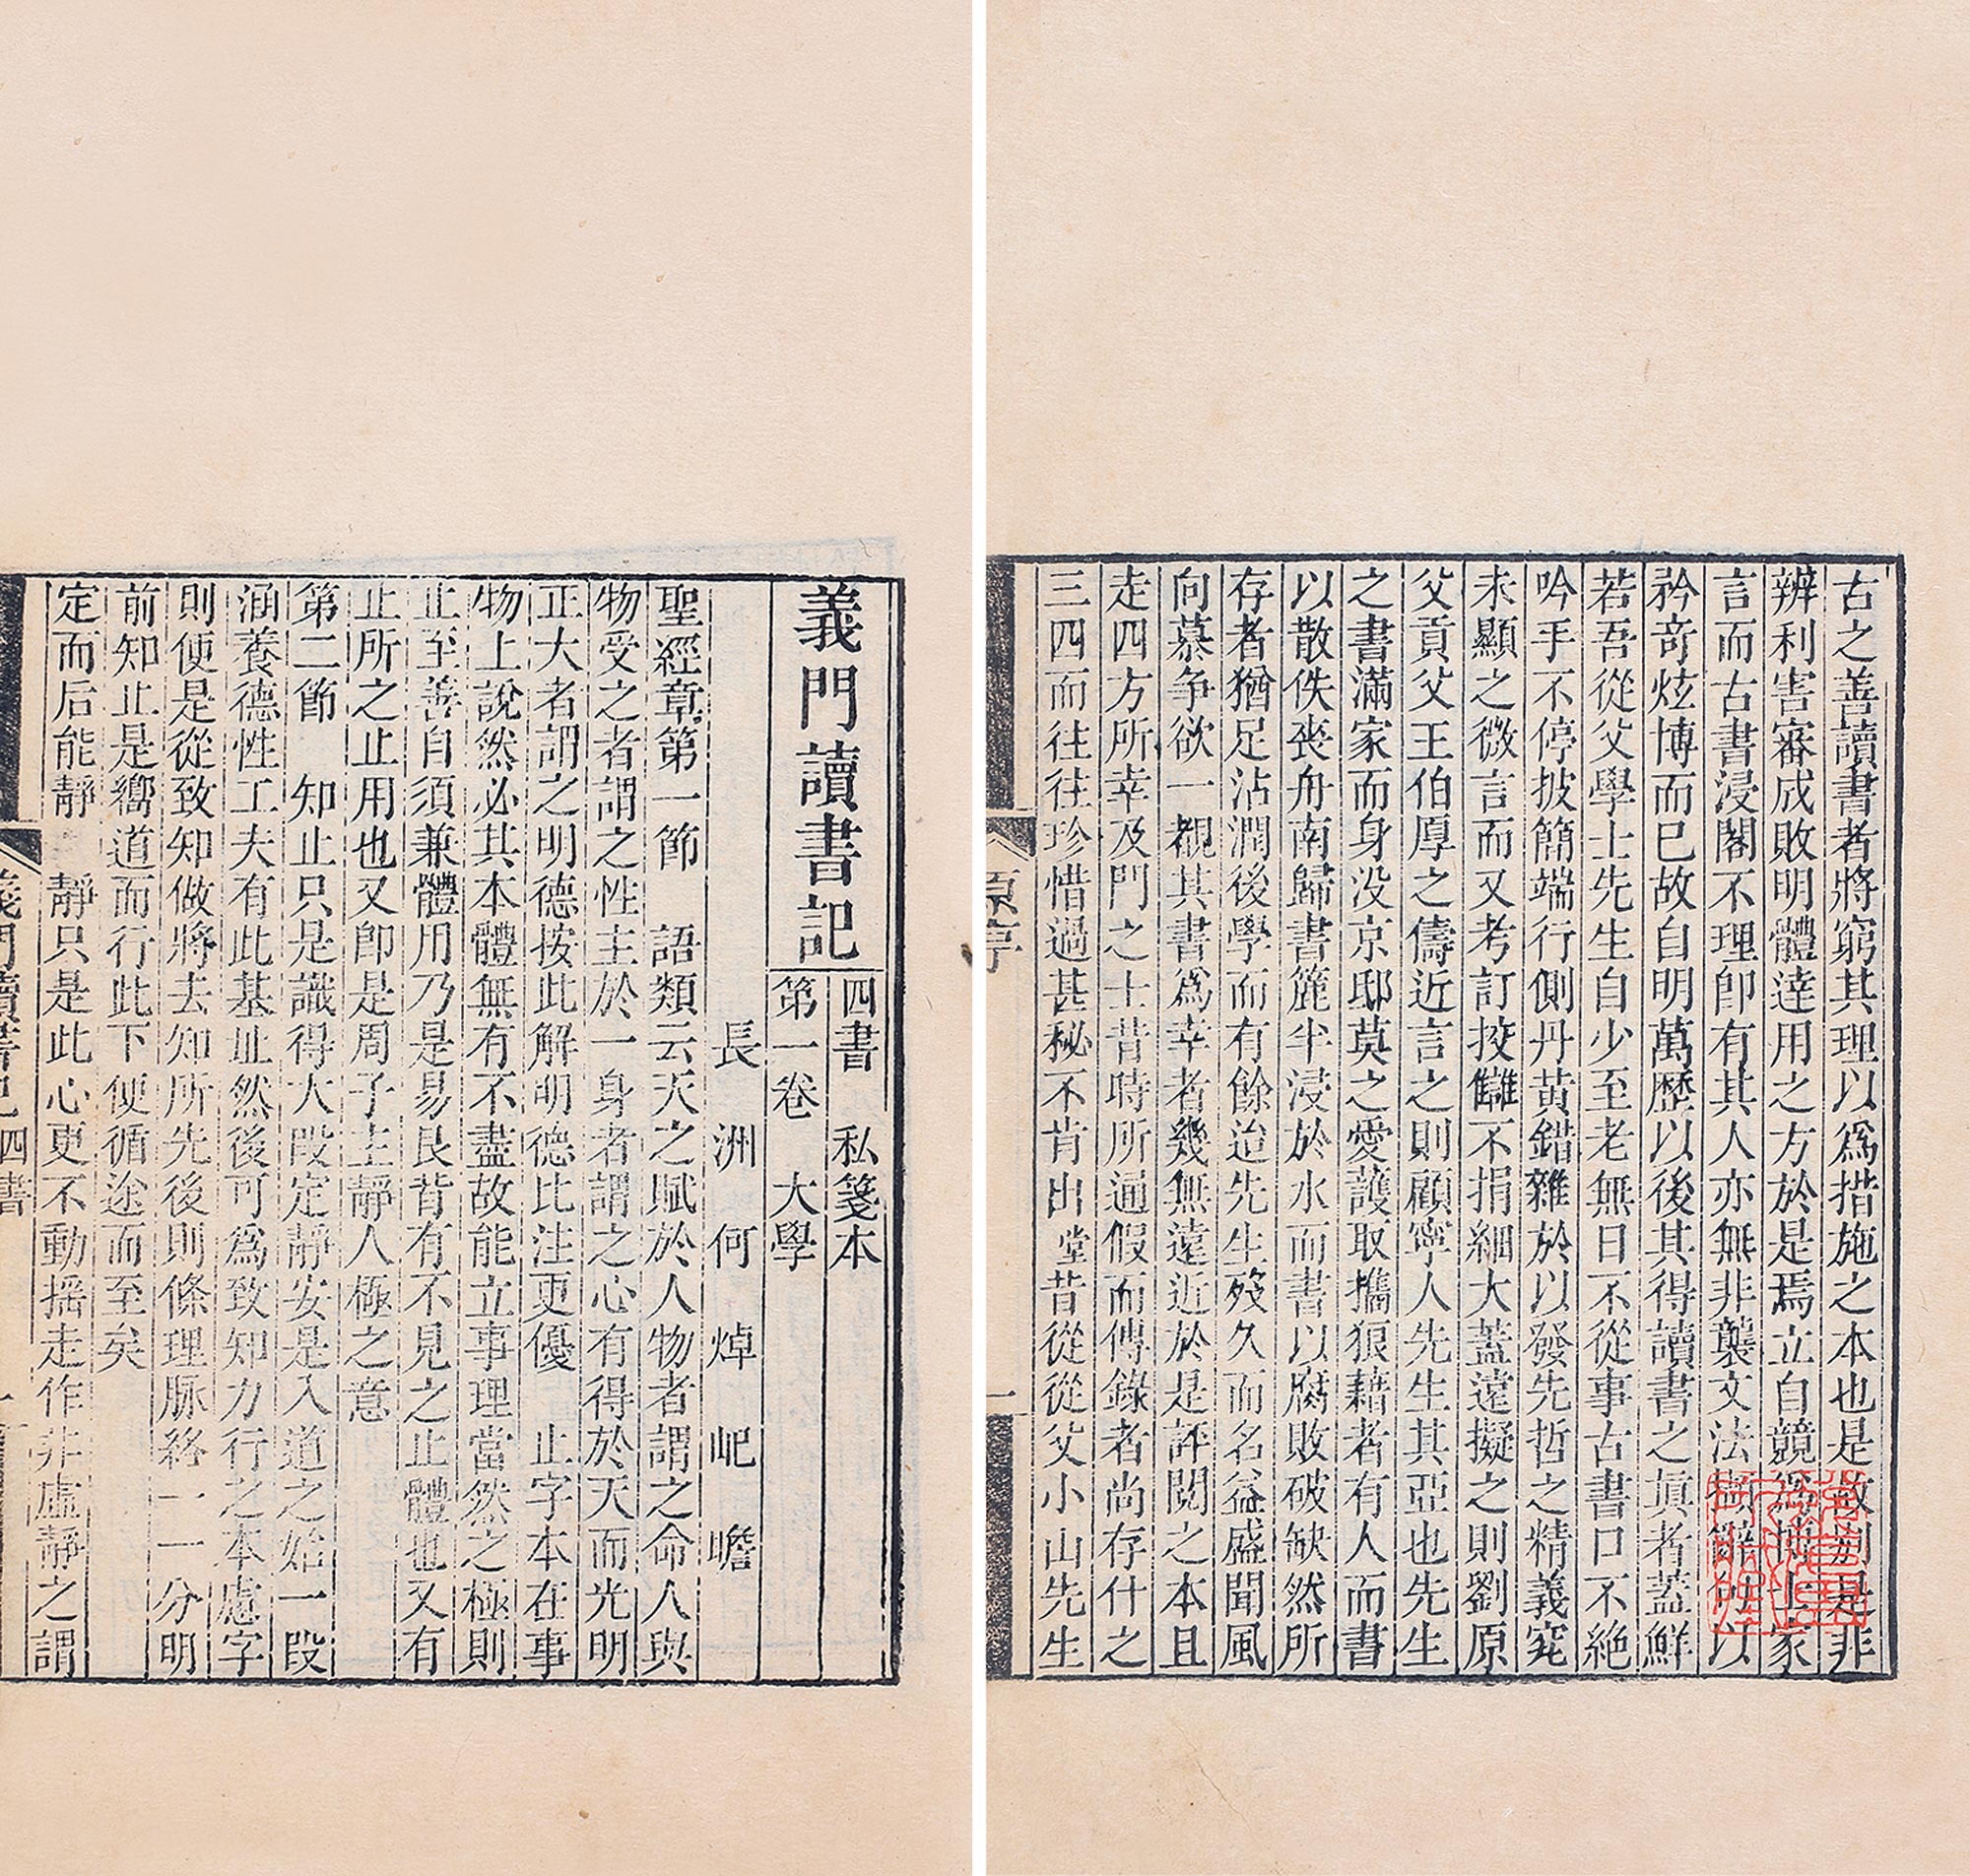 古之善讀書者將窮其理以爲措施之本也是故別是非
辨利害審成敗明體達用之方於是焉立自競爲博士家
言而古書浸閣不理卽有其人亦無非襲文法辭句以
矜奇炫博而巳故自明萬歷以後其得讀書之眞者蓋鮮
若吾從父學士先生自少至老無日不從事古書口不絕
吟手不停披簡端行側丹黃錯雜於以發先哲之精義究
未顯之微言而又考訂挍讎不捐細大蓋遠擬之則劉原
父貢父王伯厚之儔近言之則顧寧人先生其亞也先生
之書滿家而身没京邸莫之愛護取攜狼藉者有人而書
以散佚喪舟南歸書簏半浸於水而書以腐敗破缺然所
存者猶足沾潤後學而有餘迨先生殁久而名益盛聞風
向慕爭欲一覩其書爲幸者幾無遠近於是評閱之本且
走四方所幸及門之士昔時所逓假而傳錄者尚存什之
三四而往往珍惜過甚秘不肯出堂昔從從父小山先生
原序 一
義門讀書記
四書 私箋本
第一卷 大學
長洲何焯屺瞻
聖經章第一節 語類云天之賦於人物者謂之命人與
物受之者謂之性主於一身者謂之心有得於天而光明
正大者謂之明德按此解明德比注更優 止字本在事
物上說然必其本體無有不盡故能立事理當然之極則
止至善自須兼體用乃是易艮背有不見之止體也又有
止所之止用也又卽是周子主靜人極之意
第二節 知止只是識得大段定靜安是入道之始一段
涵養德性工夫有此基址然後可爲致知力行之本處字
則便是從致知做將去知所先後則條理脉絡一一分明
前知止是嚮道而行此下便循途而至矣
定而后能靜 靜只是此心更不動揺走作非虛靜之謂
義門讀書記 四書 一